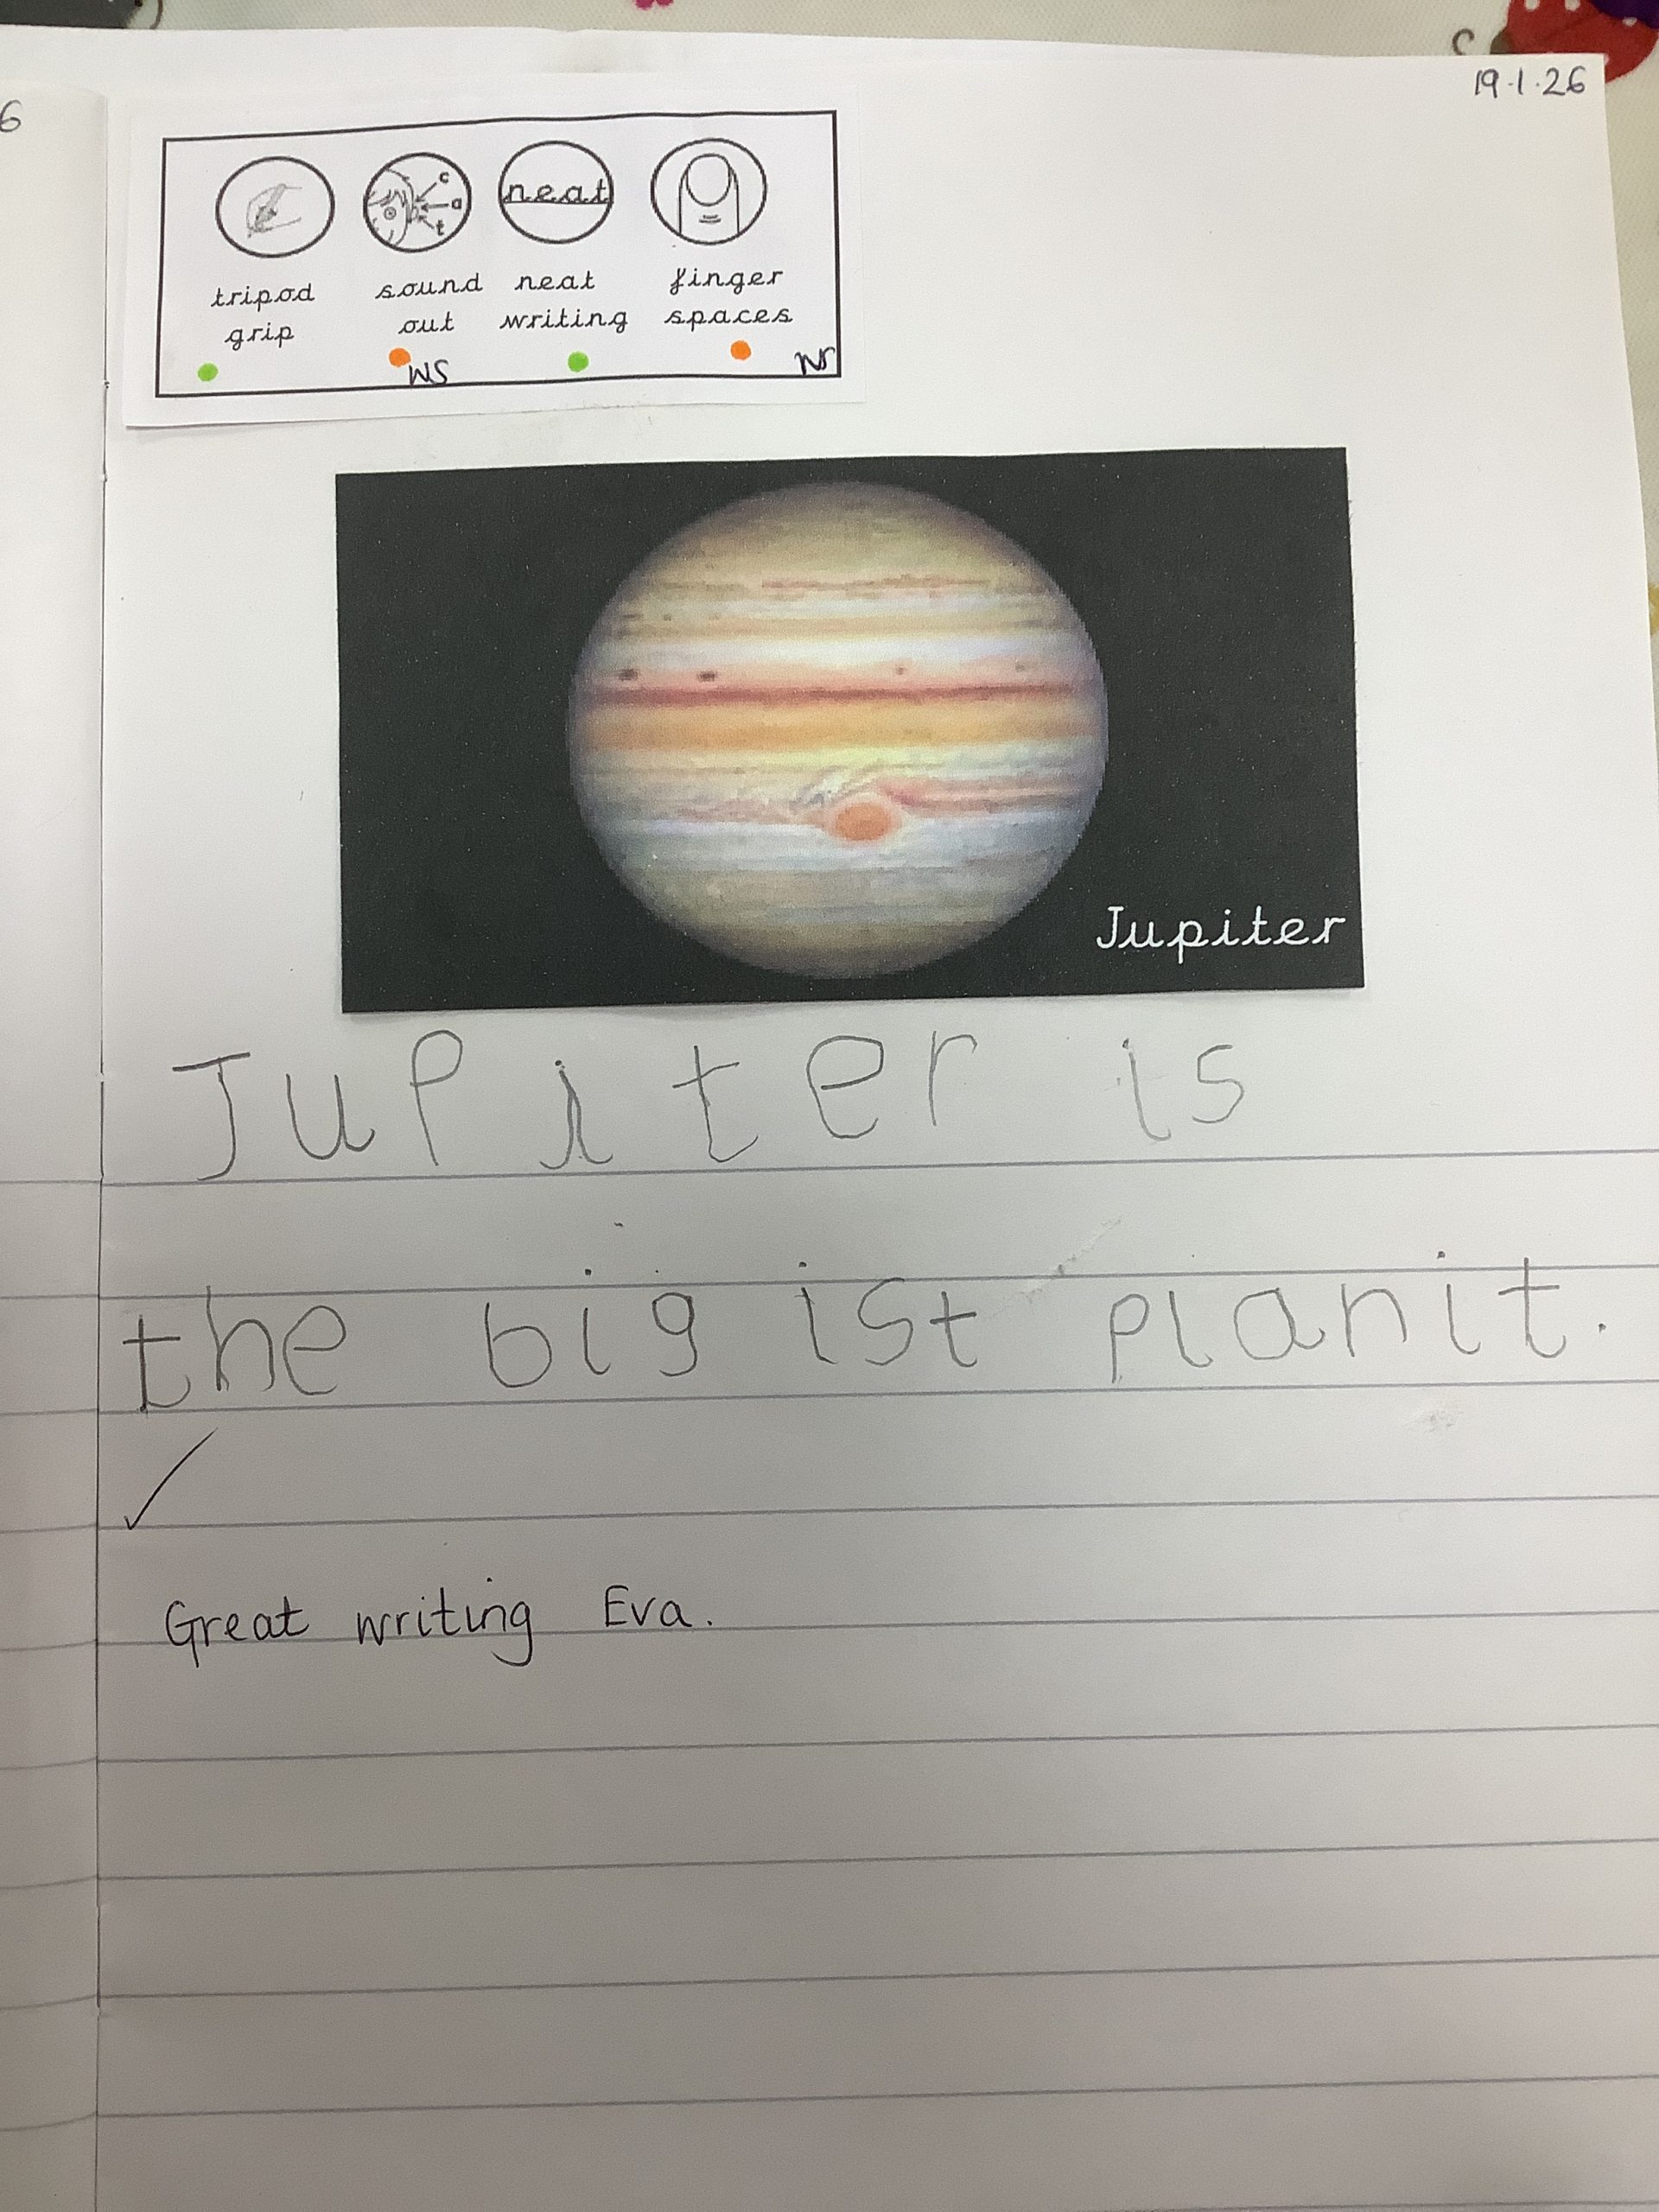 6
19.1.26
c
a
t
neat
tripod sound neat finger
grip out writing spaces
WS
Jupiter
Jupiter is
the big ist planit.
Great writing Eva.